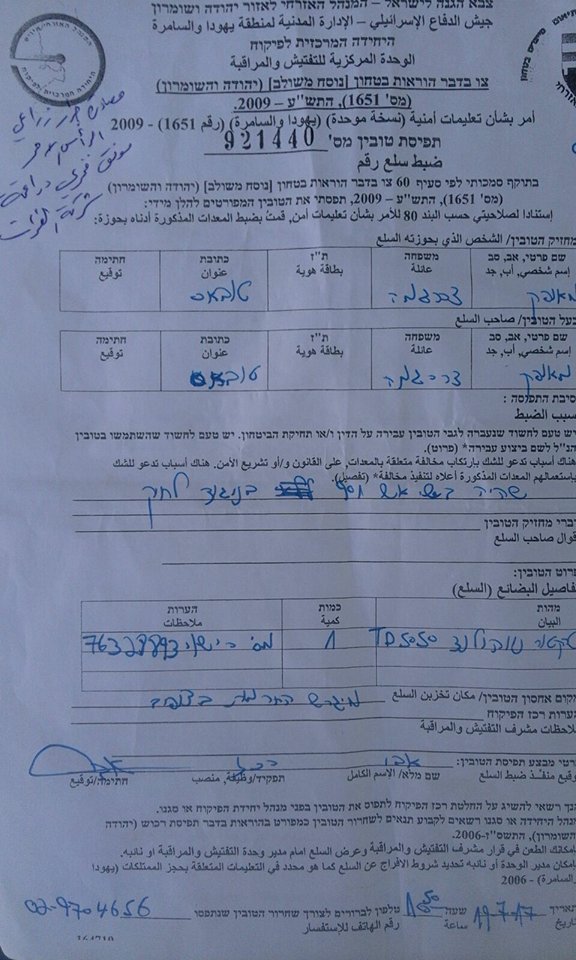 צבא הגנה לישראל – המנהל האזרחי לאזור יהודה ושומרון
جيش الدفاع الإسرائيلي – الإدارة المدنية لمنطقة يهودا والسامرة
היחידה המרכזית לפיקוח
الوحدة المركزية للتفتيش والمراقبة
צו בדבר הוראות בטחון [נוסח משולב] (יהודה והשומרון)
(מס' 1651), התש"ע – 2009.
أمر بشأن تعليمات أمنية (نسخة موحدة) (يهودا والسامرة) (رقم 1651) - 2009
תפיסת טובין מס' 921440
ضبط سلع رقم
מصادرة جرار زراعي
موفق فخري دراغمة
בתוקף סמכותי לפי סעיף 60 צו בדבר הוראות בטחון [נוסח משולב] (יהודה והשומרון)
(מס' 1651), התש"ע – 2009, תפסתי את הטובין המפורטים להלן מידי:
إستنادا لصلاحيتي حسب البند 80 للأمر بشأن تعليمات أمن, قمت بضبط المعدات المذكورة أدناه بحوزة:
מחזיק הטובין/ الشخص الذي بحوزته السلع
שם פרטי, אב, סב משפחה ת"ז כתובת חתימה
إسم شخصي, أب, جد عائلة بطاقة هوية عنوان توقيع
מאופק דראגמה טובאס
בעל הטובין/ صاحب السلع
שם פרטי, אב, סב משפחה ת"ז כתובת חתימה
إسم شخصي, أب, جد عائلة بطاقة هوية عنوان توقيع
מאופק דראגמה טובאס
סיבת התפוסה :
سبب الضبط
יש טעם לחשוד שנעברה לגבי הטובין עבירה על הדין ו/או תחיקת הביטחון. יש טעם לחשוד שהשתמשו בטובין
הנ"ל לשם ביצוע עבירה* (פרוט).
هناك أسباب تدعو للشك بارتكاب مخالفة متعلقة بالمعدات, على القانون و/أو تشريع الأمن. هناك أسباب تدعو للشك
باستعمالهم المعدات المذكورة أعلاه لتنفيذ مخالفة* (تفصيل).
שהיה בשטח אש בניגוד לחוק
דברי מחזיק הטובין
أقوال صاحب السلع
פרוט הטובין:
تفاصيل البضائع (السلع)
מהות כמות הערות
البيان كمية ملاحظات
טרקטור ניו הולנד TD5050 1 מס' רישוי
מקום אחסון הטובין/ مكان تخزين السلع מיגרש החרמות
הערות רכז הפיקוח
ملاحظات مشرف التفتيش والمراقبة
פרטי מבצע תפיסת הטובין:
توقيع منفذ ضبط السلع שם מלא/ الاسم الكامل תפקיד/وظيفة, منصب חתימה/توقيع
הנך רשאי להשיג על החלטת רכז הפיקוח לתפוס את הטובין בפני מנהל יחידת הפיקוח או סגנו.
מנהל היחידה או סגנו רשאים לקבוע תנאים לשחרור הטובין כמפורט בהוראות בדבר תפיסת רכוש (יהודה
והשומרון), התשס"ז-2006.
بإمكانك الطعن في قرار مشرف التفتيش والمراقبة وعرض السلع امام مدير وحدة التفتيش والمراقبة او نائبه.
بإمكان مدير الوحدة أو نائبه تحديد شروط الافراج عن السلع كما هو محدد في التعليمات المتعلقة بحجز الممتلكات (يهودا
والسامرة) - 2006
תאריך 19.7.17 שעה טלפון לברורים לצורך שחרור הטובין שנתפסו 02-9704656
تاريخ ساعة رقم الهاتف للإستفسار